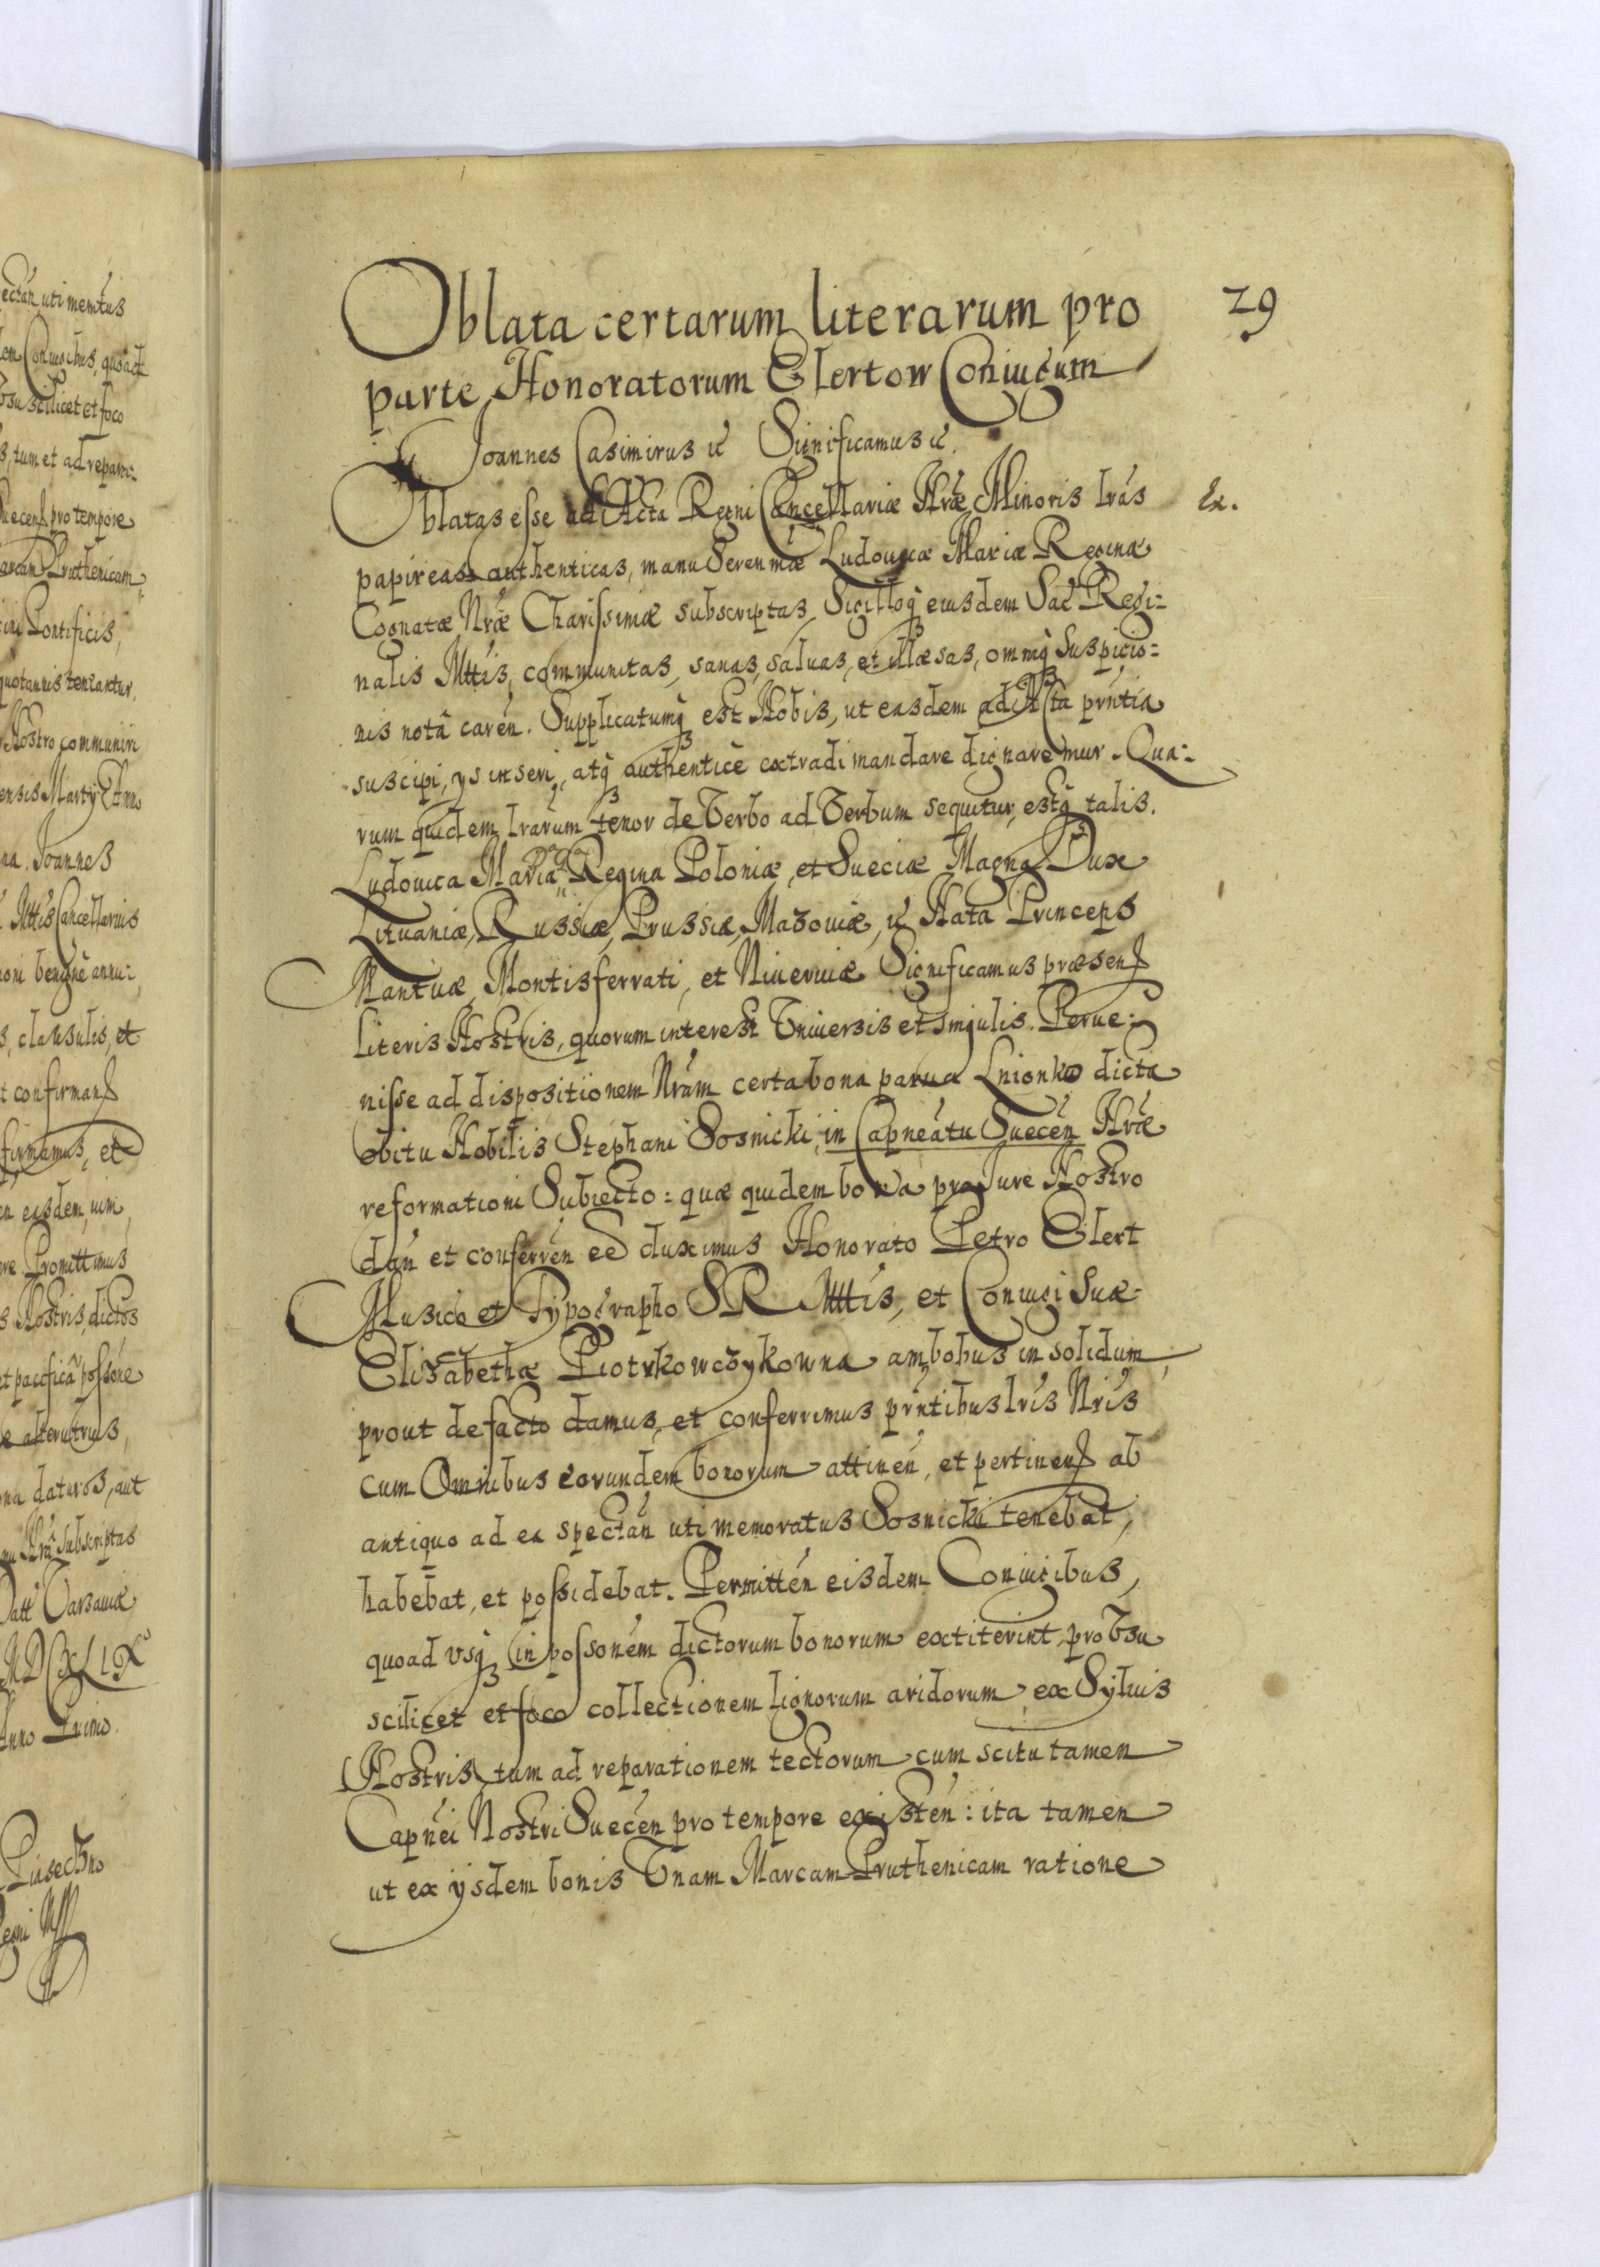 ectań uti memtus
Coniugibus, quoad
Vsu scilicet et foco
s, tum et ad repara=
Suecens pro tempore
arcam Pruthenicam,
Pontificis,
quotannis teneantur.
Nostro communiri
ensis Martij Anno
na. Joannes
Mttis Cancellarius
oni benigne annu=
s, clausulis, et
t confirmans
firmamus, et
eisdem, vim,
re Promittimus
s Nostris, dictos
et pacificâ possone
alterutrius,
daturos, aut
subscriptas
Datt Varsaviæ
MDCXLIX
Anno Primo.
Piaseczno
Regni
29
Oblata certarum literarum pro
parte Honoratorum Elertow Coniugum
Joannes Casimirus &c Significamus &c.
Oblatas esse ad Acta Regni Cancellariæ Nræ Minoris lras
Ex.
papireas authenticas, manu Serenmæ Ludovicæ Mariæ Reginæ
Cognatæ Nræ Charissimæ subscriptas, Sigilloq eiusdem Sac Regi=
nalis Mttis, communitas, sanas, salvas, et illæsas, omniq Suspicio=
nis notâ caren. Supplicatumq est Nobis, ut easdem ad Acta prntia
suscipi, ys inseri, atq authenticè extradi mandare dignaremur. Qua=
rum quidem lrarum tenor de Verbo ad Verbum sequitur, estq talis.
Ludovica Maria Dei Gra Regina Poloniæ, et Sueciæ Magna Dux
Lituaniæ, Russiæ, Prussiæ, Mazoviæ, &c Nata Princeps
Mantuæ, Montisferrati, et Niverniæ Significamus præsens
literis Nostris, quorum interest Universis et singulis. Perve=
nisse ad dispositionem Nram certa bona parua Lnionko dicta
obitu Nobilis Stephani Sosnicki, in Capneatu Suecen Nræ
reformationi Subiecto: quæ quidem bona pro Jure Nostro
dan et conferren ee duximus Honorato Petro Elert
Musico et Typographo SR Mttis, et Coniugi Suæ
Elisabethæ Piotrkowczykowna ambobus in solidum,
prout de facto damus, et conferrimus prntibus lris Nris
cum Omnibus eorundem bonorum attinen, et pertinens ab
antiquo ad ea spectan uti memoratus Sosnicki tenebat,
habebat, et possidebat. Permitten eisdem Coniugibus,
quoad vsq in possonem dictorum bonorum extiterint, pro Vsu
scilicet et foco collectionem lignorum aridorum ex Syluis
Nostris, tum ad reparationem tectorum cum scitu tamen
Capnei Nostri Suecen pro tempore existen: ita tamen
ut ex ijsdem bonis Unam Marcam Pruthenicam ratione